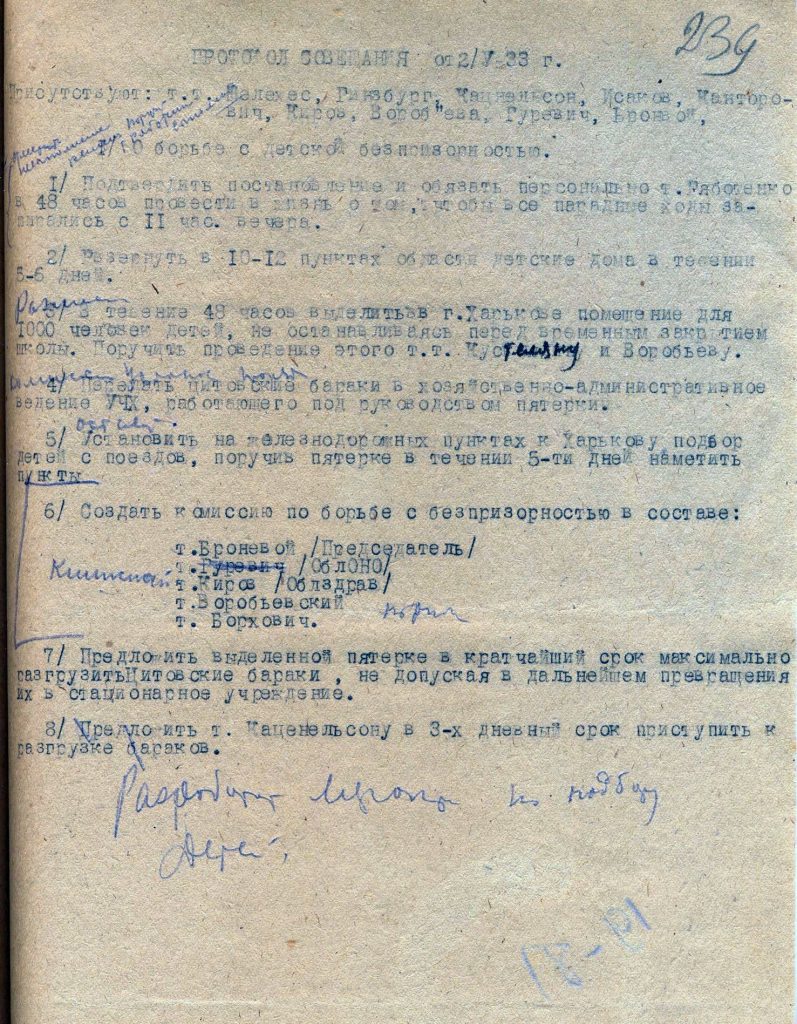 239
ПРОТОКОЛ СОВЕЩАНИЯ от 2/V-33 г.
Присутствуют: т.т. Шелехес, Гинзбург, Кацнельсон, Исаков, Канторо-
вич, Киров, Воробьева, Гуревич, Броневой,
1/ О борьбе с детской безпризорностью.
1/ Подтвердить постановление и обязать персонально т.
в 48 часов провести в жизнь о том, чтобы все парадные ходы за-
пирались с II час. вечера.
2/ Развернуть в 10-12 пунктах области детские дома в течении
5-6 дней.
3/ В течение 48 часов выделить в г.Харькове помещение для
1000 человек детей, не останавливаясь перед временным закрытием
школы. Поручить проведение этого т.т. и Воробьеву.
4/ Передать цитовские бараки в хозяйственно-административное
ведение УЧХ, работающего под руководством пятерки.
5/ Установить на железнодорожных пунктах к Харькову подбор
детей с поездов, поручив пятерке в течении 5-ти дней наметить
пункты
6/ Создать комиссию по борьбе с безпризорностью в составе:
т.Броневой /Председатель/
т.Гуревич /ОблОНО/
т.Киров /Облздрав/
т.Воробьевский
т. Борхович.
7/ Предложить выделенной пятерке в кратчайший срок максимально
разгрузить Цитовские бараки , не допуская в дальнейшем превращения
их в стационарное учреждение.
8/ Предложить т. Каценельсону в 3-х дневный срок приступить к
разгрузке бараков.
по подбору
детей.